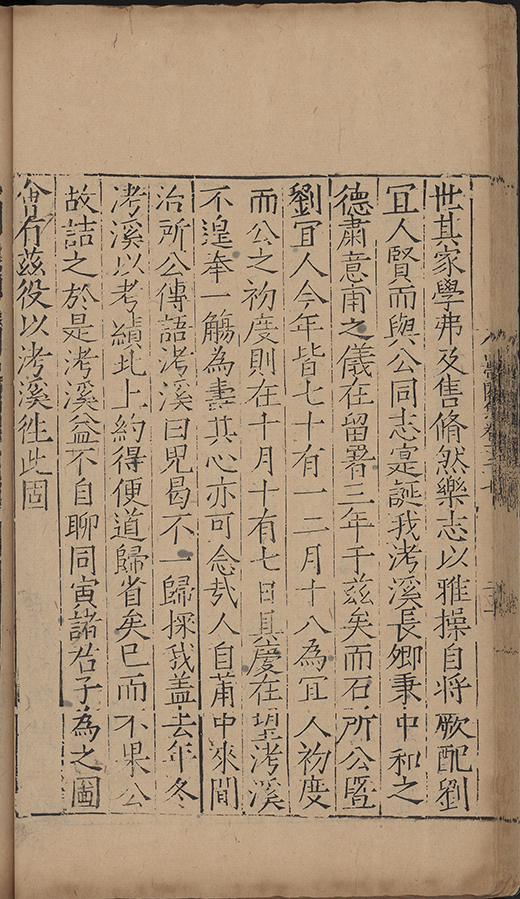 世其家學弗及售翛然樂志以雅操自將厥配劉
宜人賢而與公同志寔誕我洘溪長卿秉中和之
德肅意甫之儀在留署三年于茲矣而石所公暨
劉宜人今年皆七十有一二月十八為宜人初度
而公之初度則在十月十有七日具慶在望洘溪
不遑奉一觴為壽其心亦可念哉人自莆中來間
治所公傳語洘溪曰兒曷不一歸探我盖去年冬
洘溪以考績北上約得便道歸省矣已而不果公
故詰之於是洘溪益不自聊同寅諸君子為之圖
會有茲役以洘溪徃此固